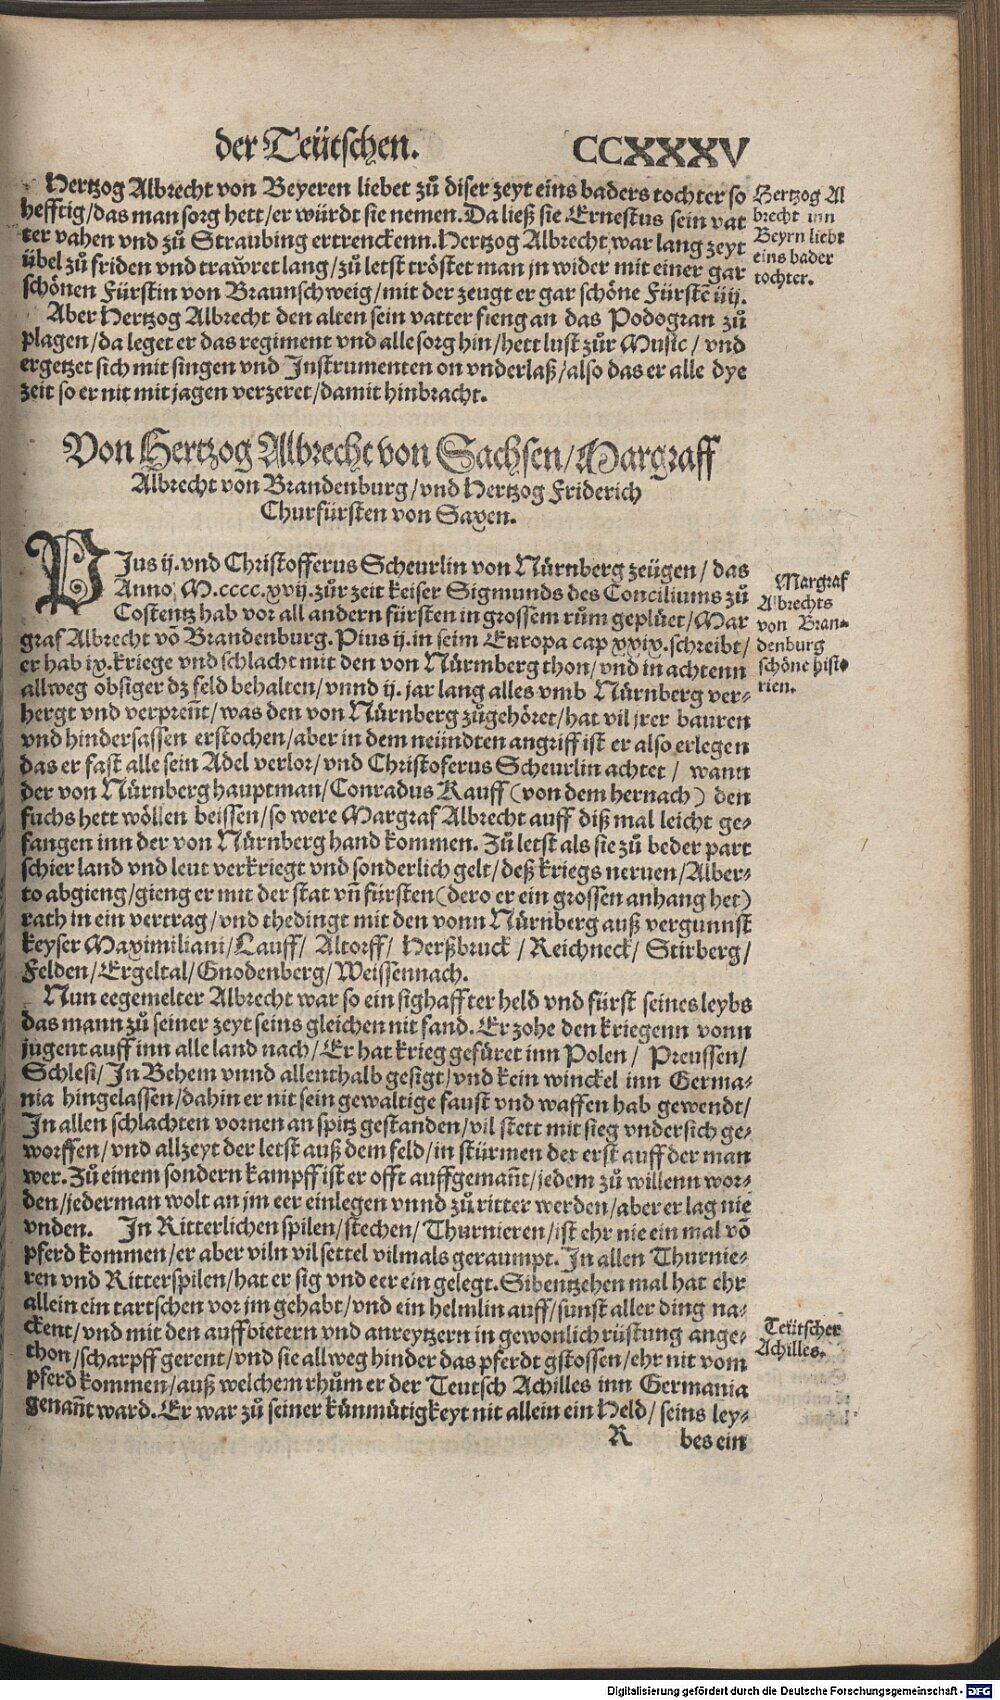 der Teütschen. CCXXXV
Hertzog Albrecht von Beyeren liebet zů diser zeyt eins baders tochter so
hefftig/das man sorg hett/er würdt sie nemen. Da ließ sie Ernestus sein vat
ter vahen vnd zů Straubing ertrenckenn. Hertzog Albrecht war lang zeyt
übel zů friden vnd trawret lang/zů letst tröstet man jn wider mit einer gar
schönen Fürstin von Braunschweig/mit der zeugt er gar schöne Fürstē iiij.
Hertzog Al
brecht inn
Beyrn liebt
eins bader
tochter.
Aber Hertzog Albrecht den alten sein vatter fieng an das Podogran zů
plagen/da leget er das regiment vnd alle sorg hin/hett lust zůr Music/ vnd
ergetzet sich mit singen vnd Instrumenten on vnderlaß/also das er alle dye
zeit so er nit mit jagen verzeret/damit hinbracht.
Von Hertzog Albrecht von Sachsen/Margraff
Albrecht von Brandenburg/vnd Hertzog Friderich
Churfürsten von Saxen.
PIus ij. vnd Christofferus Scheurlin von Nürnberg zeügen/ das
Anno M.cccc.xvij. zůr zeit keiser Sigmunds des Conciliums zů
Costentz hab vor all andern fürsten in grossem rům geplüet/Mar
graf Albrecht võ Brandenburg. Pius ij. in seim Europa cap xxix. schreibt/
er hab ix. kriege vnd schlacht mit den von Nürmberg thon/vnd in achtenn
allweg obsiger dz feld behalten/vnnd ij. jar lang alles vmb Nürnberg ver-
hergt vnd verpreñt/was den von Nürnberg zůgehöret/hat vil jrer bauren
vnd hindersassen erstochen/aber in dem neündten angriff ist er also erlegen
das er fast alle sein Adel verlor/vnd Christoferus Scheurlin achtet/ wann
der von Nürnberg hauptman/Conradus Kauff (von dem hernach) den
fuchs hett wöllen beissen/so were Margraf Albrecht auff diß mal leicht ge-
fangen inn der von Nürnberg hand kommen. Zů letst als sie zů beder part
schier land vnd leut verkriegt vnd sonderlich gelt/deß kriegs neruen/Alber-
to abgieng/gieng er mit der stat vñ fürsten (dero er ein grossen anhang het)
rath in ein vertrag/vnd thedingt mit den vonn Nürnberg auß vergunnst
keyser Maximiliani/Lauff/ Altorff/ Herßbruck/ Reichneck/ Stirberg/
Felden/Ergeltal/Gnodenberg/Weissennach.
Margraf
Albrechts
von Bran-
denburg
schöne histo
rien.
Nun eegemelter Albrecht war so ein sighaffter held vnd fürst seines leybs
das mann zů seiner zeyt seins gleichen nit fand. Er zohe den kriegenn vonn
jugent auff inn alle land nach/Er hat krieg gefüret inn Polen/ Preussen/
Schlesi/In Behem vnnd allenthalb gesigt/vnd kein winckel inn Germa-
nia hingelassen/dahin er nit sein gewaltige faust vnd waffen hab gewendt/
In allen schlachten vornen an spitz gestanden/vil stett mit sieg vndersich ge-
worffen/vnd allzeyt der letst auß dem feld/in stürmen der erst auff der man
wer. Zů einem sondern kampff ist er offt auffgemañt/jedem zů willenn wor-
den/jederman wolt an jm eer einlegen vnnd zů ritter werden/aber er lag nie
vnden. In Ritterlichen spilen/stechen/Thurnieren/ist ehr nie ein mal võ
pferd kommen/er aber viln vil settel vilmals geraumpt. In allen Thurnie-
ren vnd Ritterspilen/hat er sig vnd eer ein gelegt. Sibentzehen mal hat ehr
allein ein tartschen vor jm gehabt/vnd ein helmlin auff/sunst aller ding na-
ckent/vnd mit den auffbietern vnd anreytzern in gewonlich rüstung ange-
thon/scharpff gerent/vnd sie allweg hinder das pferdt gstossen/ehr nit vom
pferd kommen/auß welchem rhům er der Teutsch Achilles inn Germania
genañt ward. Er war zů seiner künmütigkeyt nit allein ein Held/ seins ley-
Teütscher
Achilles.
R bes ein
Digitalisierung gefördert durch die Deutsche Forschungsgemeinschaft - DFG